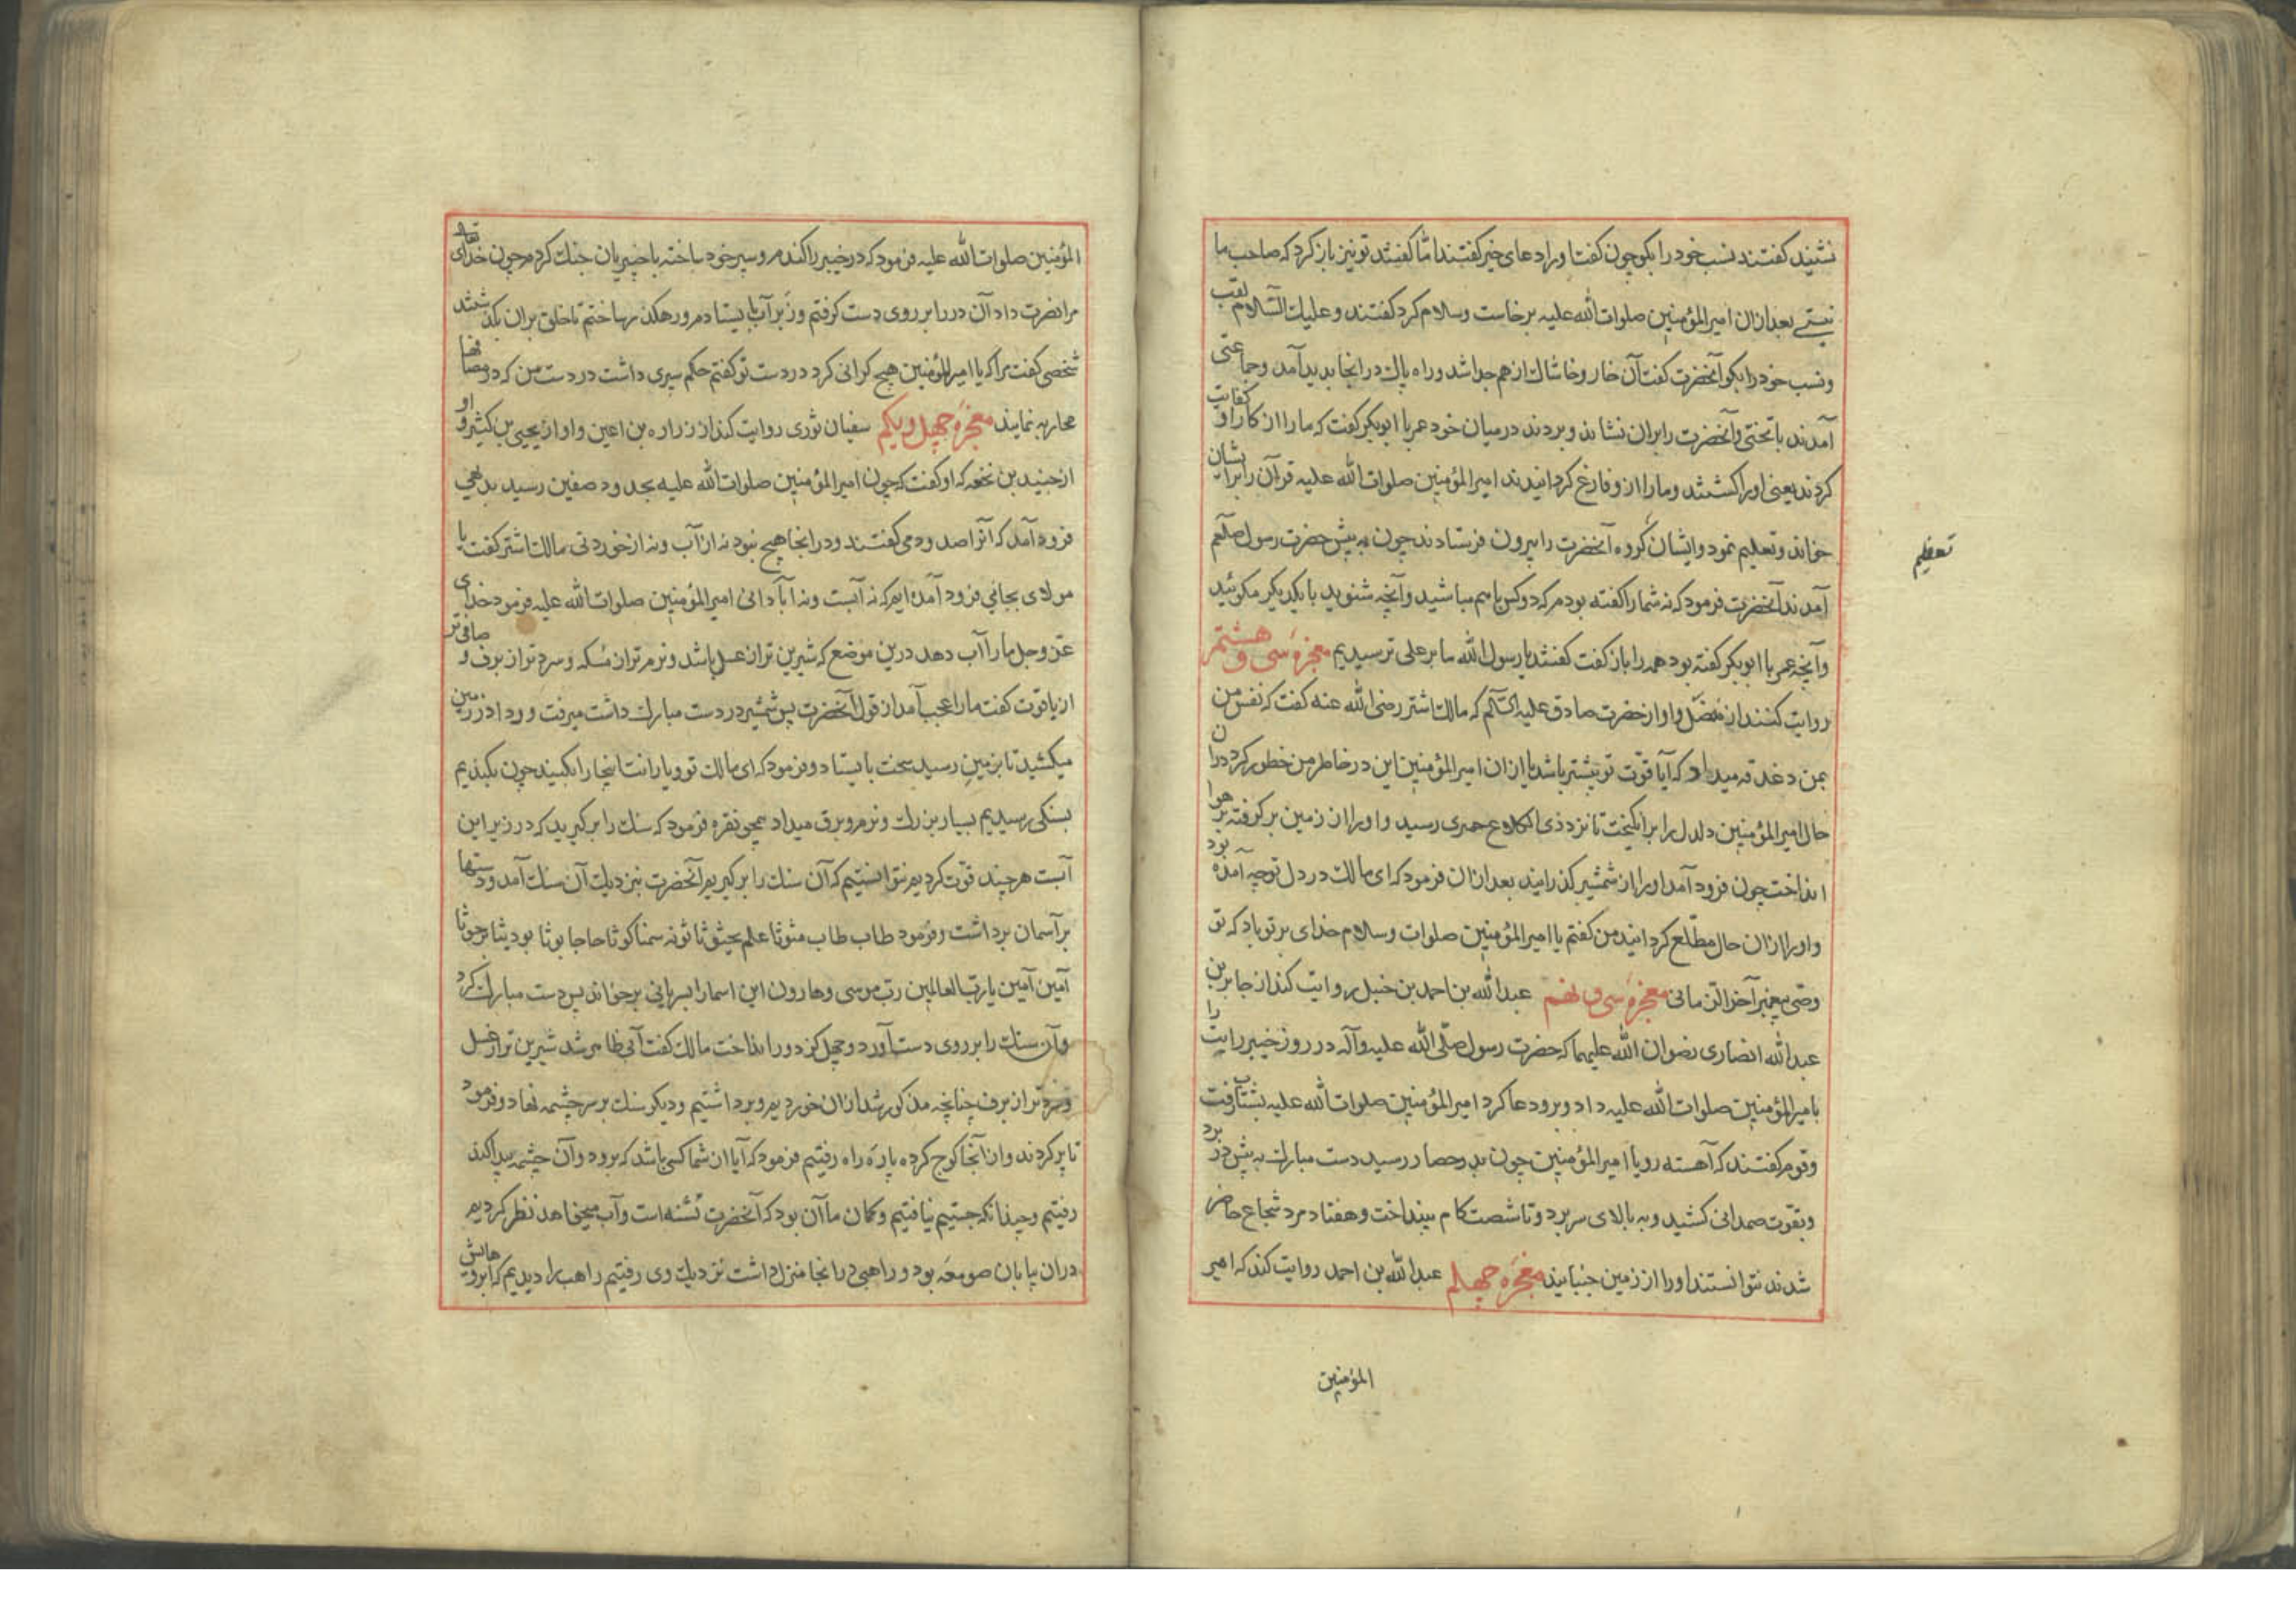 نشیند کفتند نسب خود را بکو چون کفت اورا دعای خیر کفتند امّا کفتند تو نیز باز کرد که صاحب ما
نیستے بعد ازان امیر المؤمنین صلوات الله علیه برخاست وسلام کرد کفتند وعلیك السّلام لقب
ونسب خود را بکو آنحضرت کفت آن خار وخاشاك از هم جدا شد وراه پاك در انجا بدید آمد وجماعتی
آمدند با تختی وآنحضرت را بران نشاند وبردند درمیان خود عمر با ابوبکر کفت که مارا از کار او کفایت
کردند یعنی اورا کشتند ومارا از و فارغ کردانیدند امیر المؤمنین صلوات الله علیه قرآن را برایشان
خواند وتعلیم نمود وایشان کروه آنحضرت را بیرون فرستادند چون به پیش حضرت رسول صلّعم
آمدند آنحضرت فرمود که نه شمارا کفته بودم که دو کس باهم مباشید وآنچه شنوید با یکدیکر مکوئید
وآنچه عمر با ابوبکر کفته بود همه را باز کفت کفتند یا رسول الله ما بر علی ترسیدیم معجزهٔ سی و هشتم
روایت کنند از مفضّل واو از حضرت صادق علیه السّلم که مالك اشتر رضی الله عنه کفت که نفس من
بمن دغدغه میداد که آیا قوت تو بیشتر باشد یا ازان امیر المؤمنین این در خاطر من خطور کرد دران
حال امیر المؤمنین دلدل را برانکیخت تا نزد ذی الکلاع حمیری رسید واورا از زمین بر کرفته بر هوا
انداخت چون فرود آمد اورا از شمشیر کذرانید بعد ازان فرمود که ای مالك در دل تو چه آمده بود
واورا ازان حال مطّلع کردانید من کفتم یا امیر المؤمنین صلوات وسلام خدای بر تو باد که تو
وصّی پیغمبر آخر الزّمانی معجزهٔ سی و نهم عبد الله بن احمد بن حنبل روایت کند از جابر بن
عبد الله انصاری رضوان الله علیهما که حضرت رسول صلّی الله علیه وآله در روز خیبر رایت را
بامیر المؤمنین صلوات الله علیه داد وبرو دعا کرد امیر المؤمنین صلوات الله علیه بشتاب رفت
وقوم کفتند که آهسته رو یا امیر المؤمنین چون بدر حصار رسید دست مبارك به پیش در برد
وبقوّت صمدانی کشید وبه بالای سر برد وتا شصت کام بینداخت وهفتاد مرد شجاع حاضر
شدند نتوانستند اورا از زمین جنبانیدن معجزهٔ چهلم عبد الله بن احمد روایت کند که امیر
المؤمنین
تعظیم
المؤمنین صلوات الله علیه فرمود که در خیبر را کندم وسپر خود ساخته با خیبریان جنك کردم چون خدای تعالی
مرا نصرت داد آن در را بر روی دست کرفتم ودر آب بایستادم ورهکذر ساختم تا خلق بران بکذشتند
شخصی کفت مرا که یا امیر المؤمنین هیچ کرانی کرد در دست تو کفتم حکم سپری داشت در دست من که در مصافها
محاربه نمایند معجزهٔ چهل و یکم سفیان ثوری روایت کند از زراره بن اعین واو از یحیی بن کثیر و او
از جنید بن نخعه که او کفت که چون امیر المؤمنین صلوات الله علیه بحدود صفین رسید بدهی
فرود آمد که آنرا صدود می کفتند ودر انجا هیچ نبود نه از آب ونه از خوردنی مالك اشتر کفت یا
مولای بجائی فرود آمدهٔ ایم که نه آبست ونه آبادانی امیر المؤمنین صلوات الله علیه فرمود خدای
عزّ وجل مارا آب دهد درین موضع که شیرین تر از عسل باشد ونرم تر از مسکه وسرد تر از برف و صافی تر
از یاقوت کفت مارا عجب آمد از قول آنحضرت پس شمشیر در دست مبارك داشت میرفت و ردا در زمین
میکشید تا بزمین رسید سخت بایستاد وفرمود که ای مالك تو ویارانت اینجا را بکنید چون بکندیم
بسنکی رسیدیم بسیار بزرك ونرم وبرق میداد همچو نقره فرمود که سنك را بر کیرید که در زیر این
آبست هرچند قوّت کردیم نتوانستیم که آن سنك را بر کیریم آنحضرت بنزدیك آن سنك آمد ودستها
بر آسمان برداشت وفرمود طاب طاب
آمین آمین یا ربّ العالمین ربّ موسی وهارون این اسما را بسریانی بر خواند پس دست مبارك کرد
وآن سنك را بر روی دست آورد وچهل کز دور انداخت مالك کفت آبی ظاهر شد شیرین تر از عسل
وسرد تر از برف چنانچه مذکور شد ازان خوردیم وبرداشتیم ودیکر سنك بر سر چشمه نهاد وفرمود
تا پر کردند وازآنجا کوچ کرده پارهٔ راه رفتیم فرمود که آیا از شما کسی باشد که برود وآن چشمه پیدا کند
رفتیم وچندانکه جستیم نیافتیم وکمان ما آن بود که آنحضرت تشنه است وآب میخواهد نظر کردیم
دران بیابان صومعهٔ بود وراهبی در انجا منزل داشت نزدیك وی رفتیم راهب را دیدیم که ابروهایش